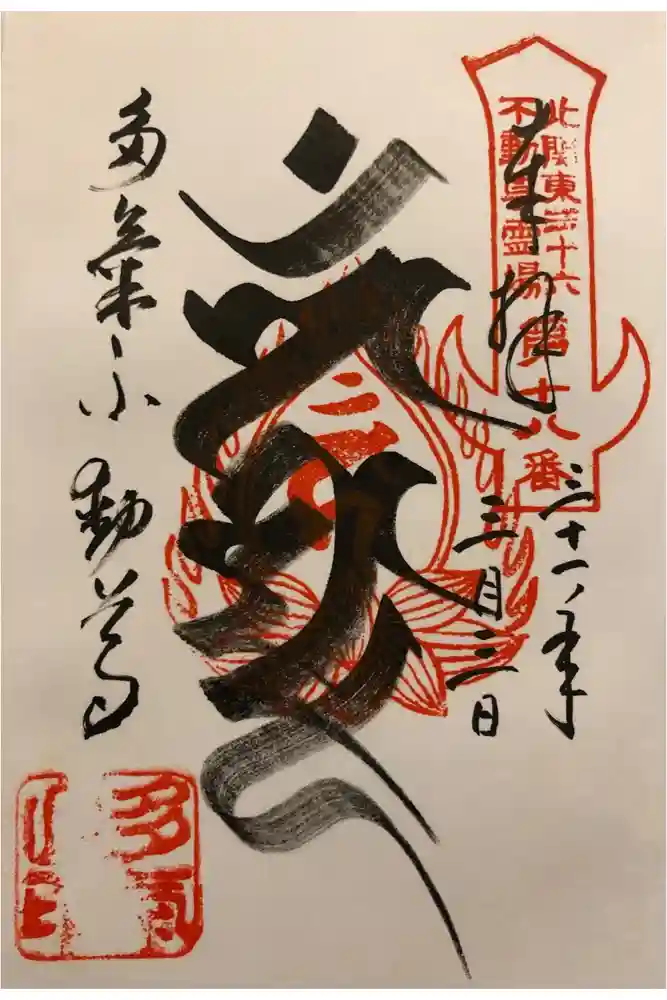 奉拝
北関東三十六
不動尊霊場
第十八番
三十一年
三月三日
多氣不動尊
多